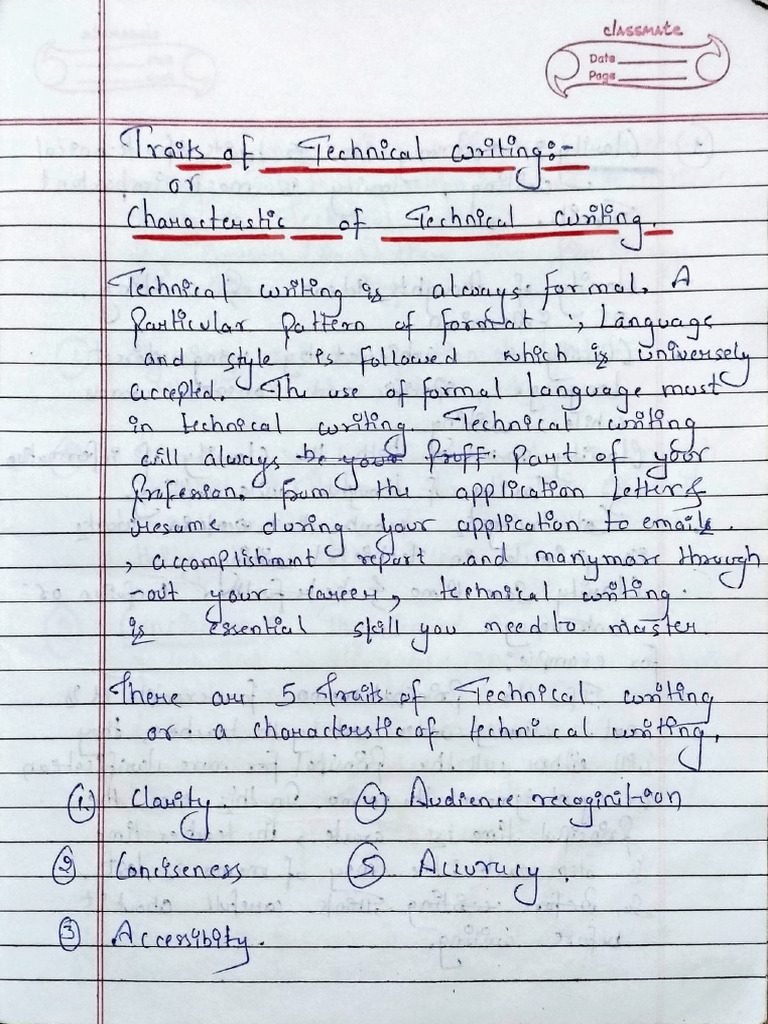 classmate
Date
Page
Traits of Technical writing:-
or
Characterstic of Technical writing.
Technical writing is always formal. A
particular pattern of format, language
and style is followed which is universely
accepted. The use of formal language must
in technical writing. Technical writing
will always be your proff. part of your
profession. from the application letter &
resume during your application to emails.
, accomplishment report and manymore through
-out your career, technical writing.
is essential skill you need to master.
There are 5 Traits of Technical writing
or a characterstic of technical writing.
① Clarity ④ Audience recoginition
② Conciseness ⑤ Accuracy.
③ Accessibity.